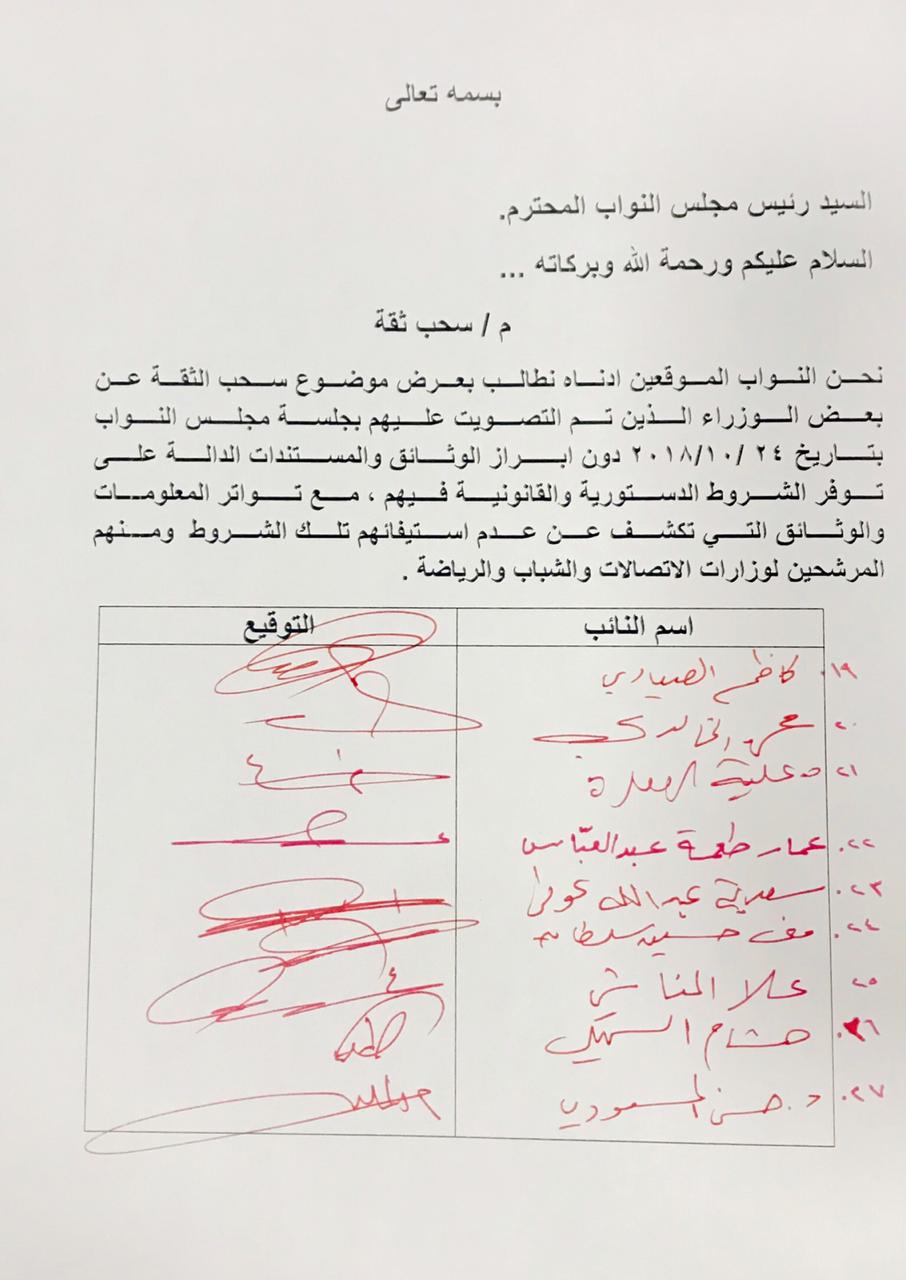 بسمه تعالى
السيد رئيس مجلس النواب المحترم.
السلام عليكم ورحمة الله وبركاته ...
م / سحب ثقة
نحن النواب الموقعين ادناه نطالب بعرض موضوع سحب الثقة عن
بعض الوزراء الذين تم التصويت عليهم بجلسة مجلس النواب
بتاريخ ٢٤ /٢٠١٨/١٠ دون ابراز الوثائق والمستندات الدالة على
توفر الشروط الدستورية والقانونية فيهم ، مع تواتر المعلومات
والوثائق التي تكشف عن عدم استيفائهم تلك الشروط ومنهم
المرشحين لوزارات الاتصالات والشباب والرياضة .
اسم النائب التوقيع
١٩. كاظم الصيادي
٢٠. محمد الخالدي
٢١. علية
٢٢. عمار طعمة عبد العباس
٢٣. سعدية عبدالله عوفي
٢٤. حسين سلطان
٢٥ علا الناشي
٢٦. هشام السهيل
٢٧. د. حسن المسعودي